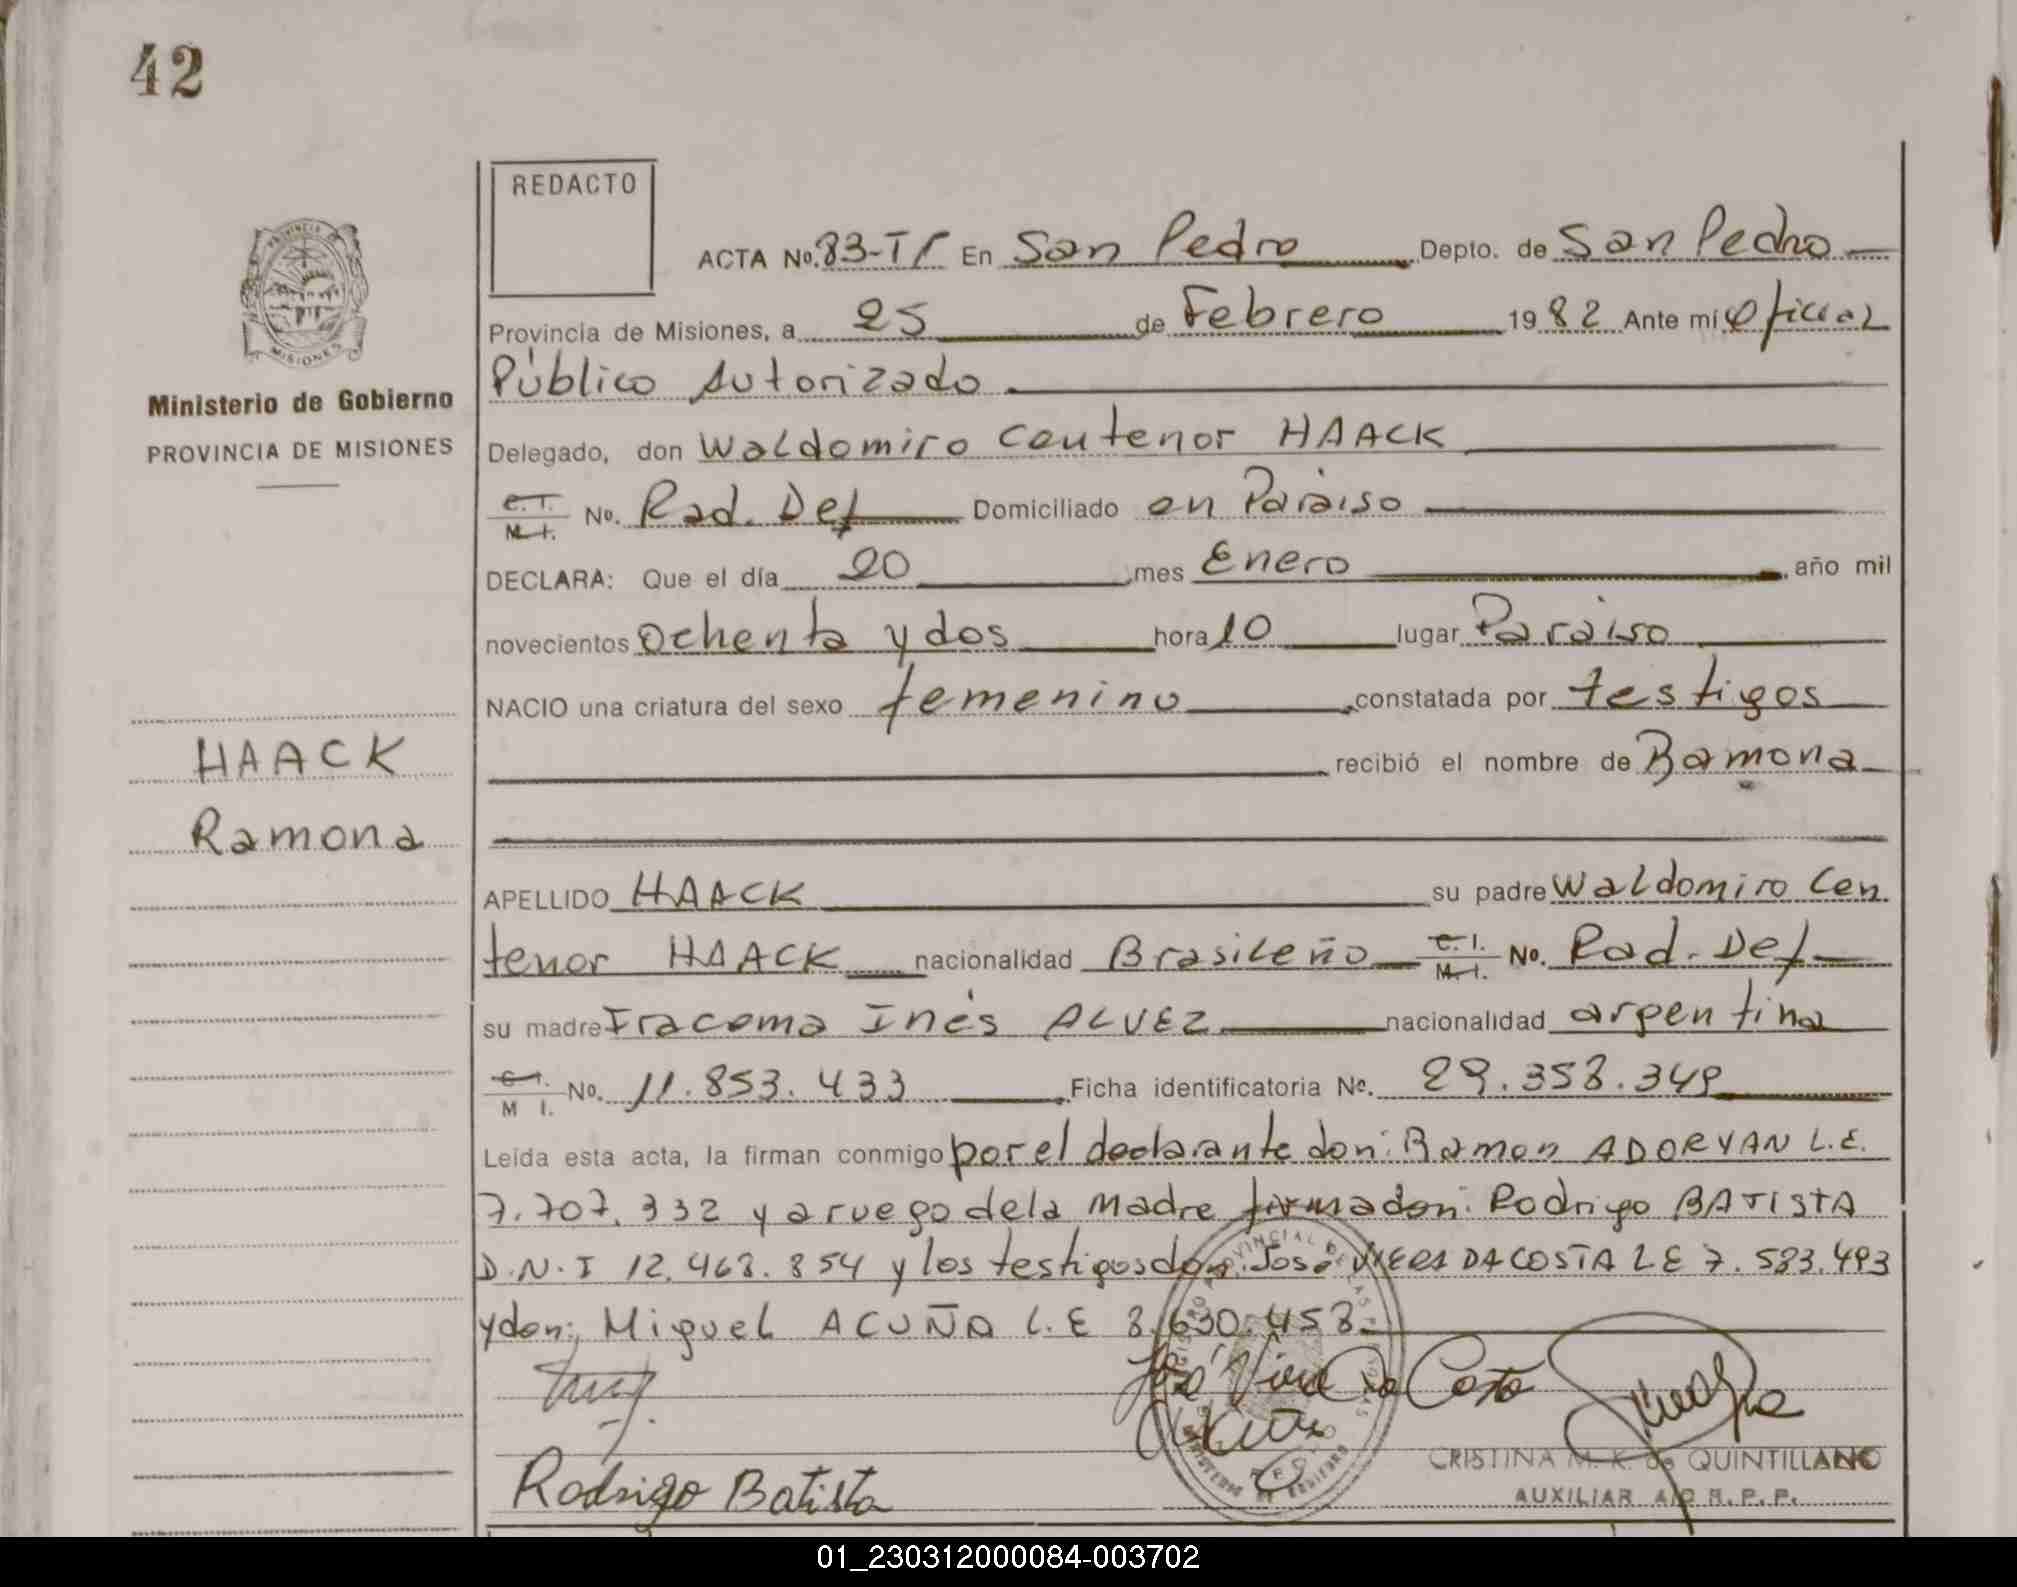 42
REDACTO
ACTA No. 83-TI En San Pedro Depto. de San Pedro
Provincia de Misiones, a 25 de Febrero 1982 Ante mí Oficial
Público Autorizado
Delegado, don Waldomiro Centenor HAACK
C.I. M.I. No. Rad. Def Domiciliado en Paraiso
DECLARA: Que el día 20 mes Enero año mil
novecientos Ochenta y dos hora 10 lugar Paraiso
NACIO una criatura del sexo femenino constatada por testigos
recibió el nombre de Ramona
APELLIDO HAACK su padre Waldomiro Cen
tenor HAACK nacionalidad Brasileño C.I. M.I. No. Rad. Def
su madre Iracema Inés ALVEZ nacionalidad argentina
C.I. M I. No. 11.853.433 Ficha identificatoria No. 29.358.349
Leída esta acta, la firman conmigo por el declarante don: Ramon ADORYAN L.E.
7.707.332 y a ruego de la madre firma don: Rodrigo BATISTA
D.N.I 12.468.854 y los testigos don: José VIERA DA COSTA L E 7.583.493
y don: Miguel ACUÑA L.E 8.630.458
José Viera Da Costa
Rodrigo Batista
CRISTINA M. K. de QUINTILLANO
AUXILIAR A/C R.P.P.
MISIONES
Ministerio de Gobierno
PROVINCIA DE MISIONES
HAACK
Ramona
01_230312000084-003702